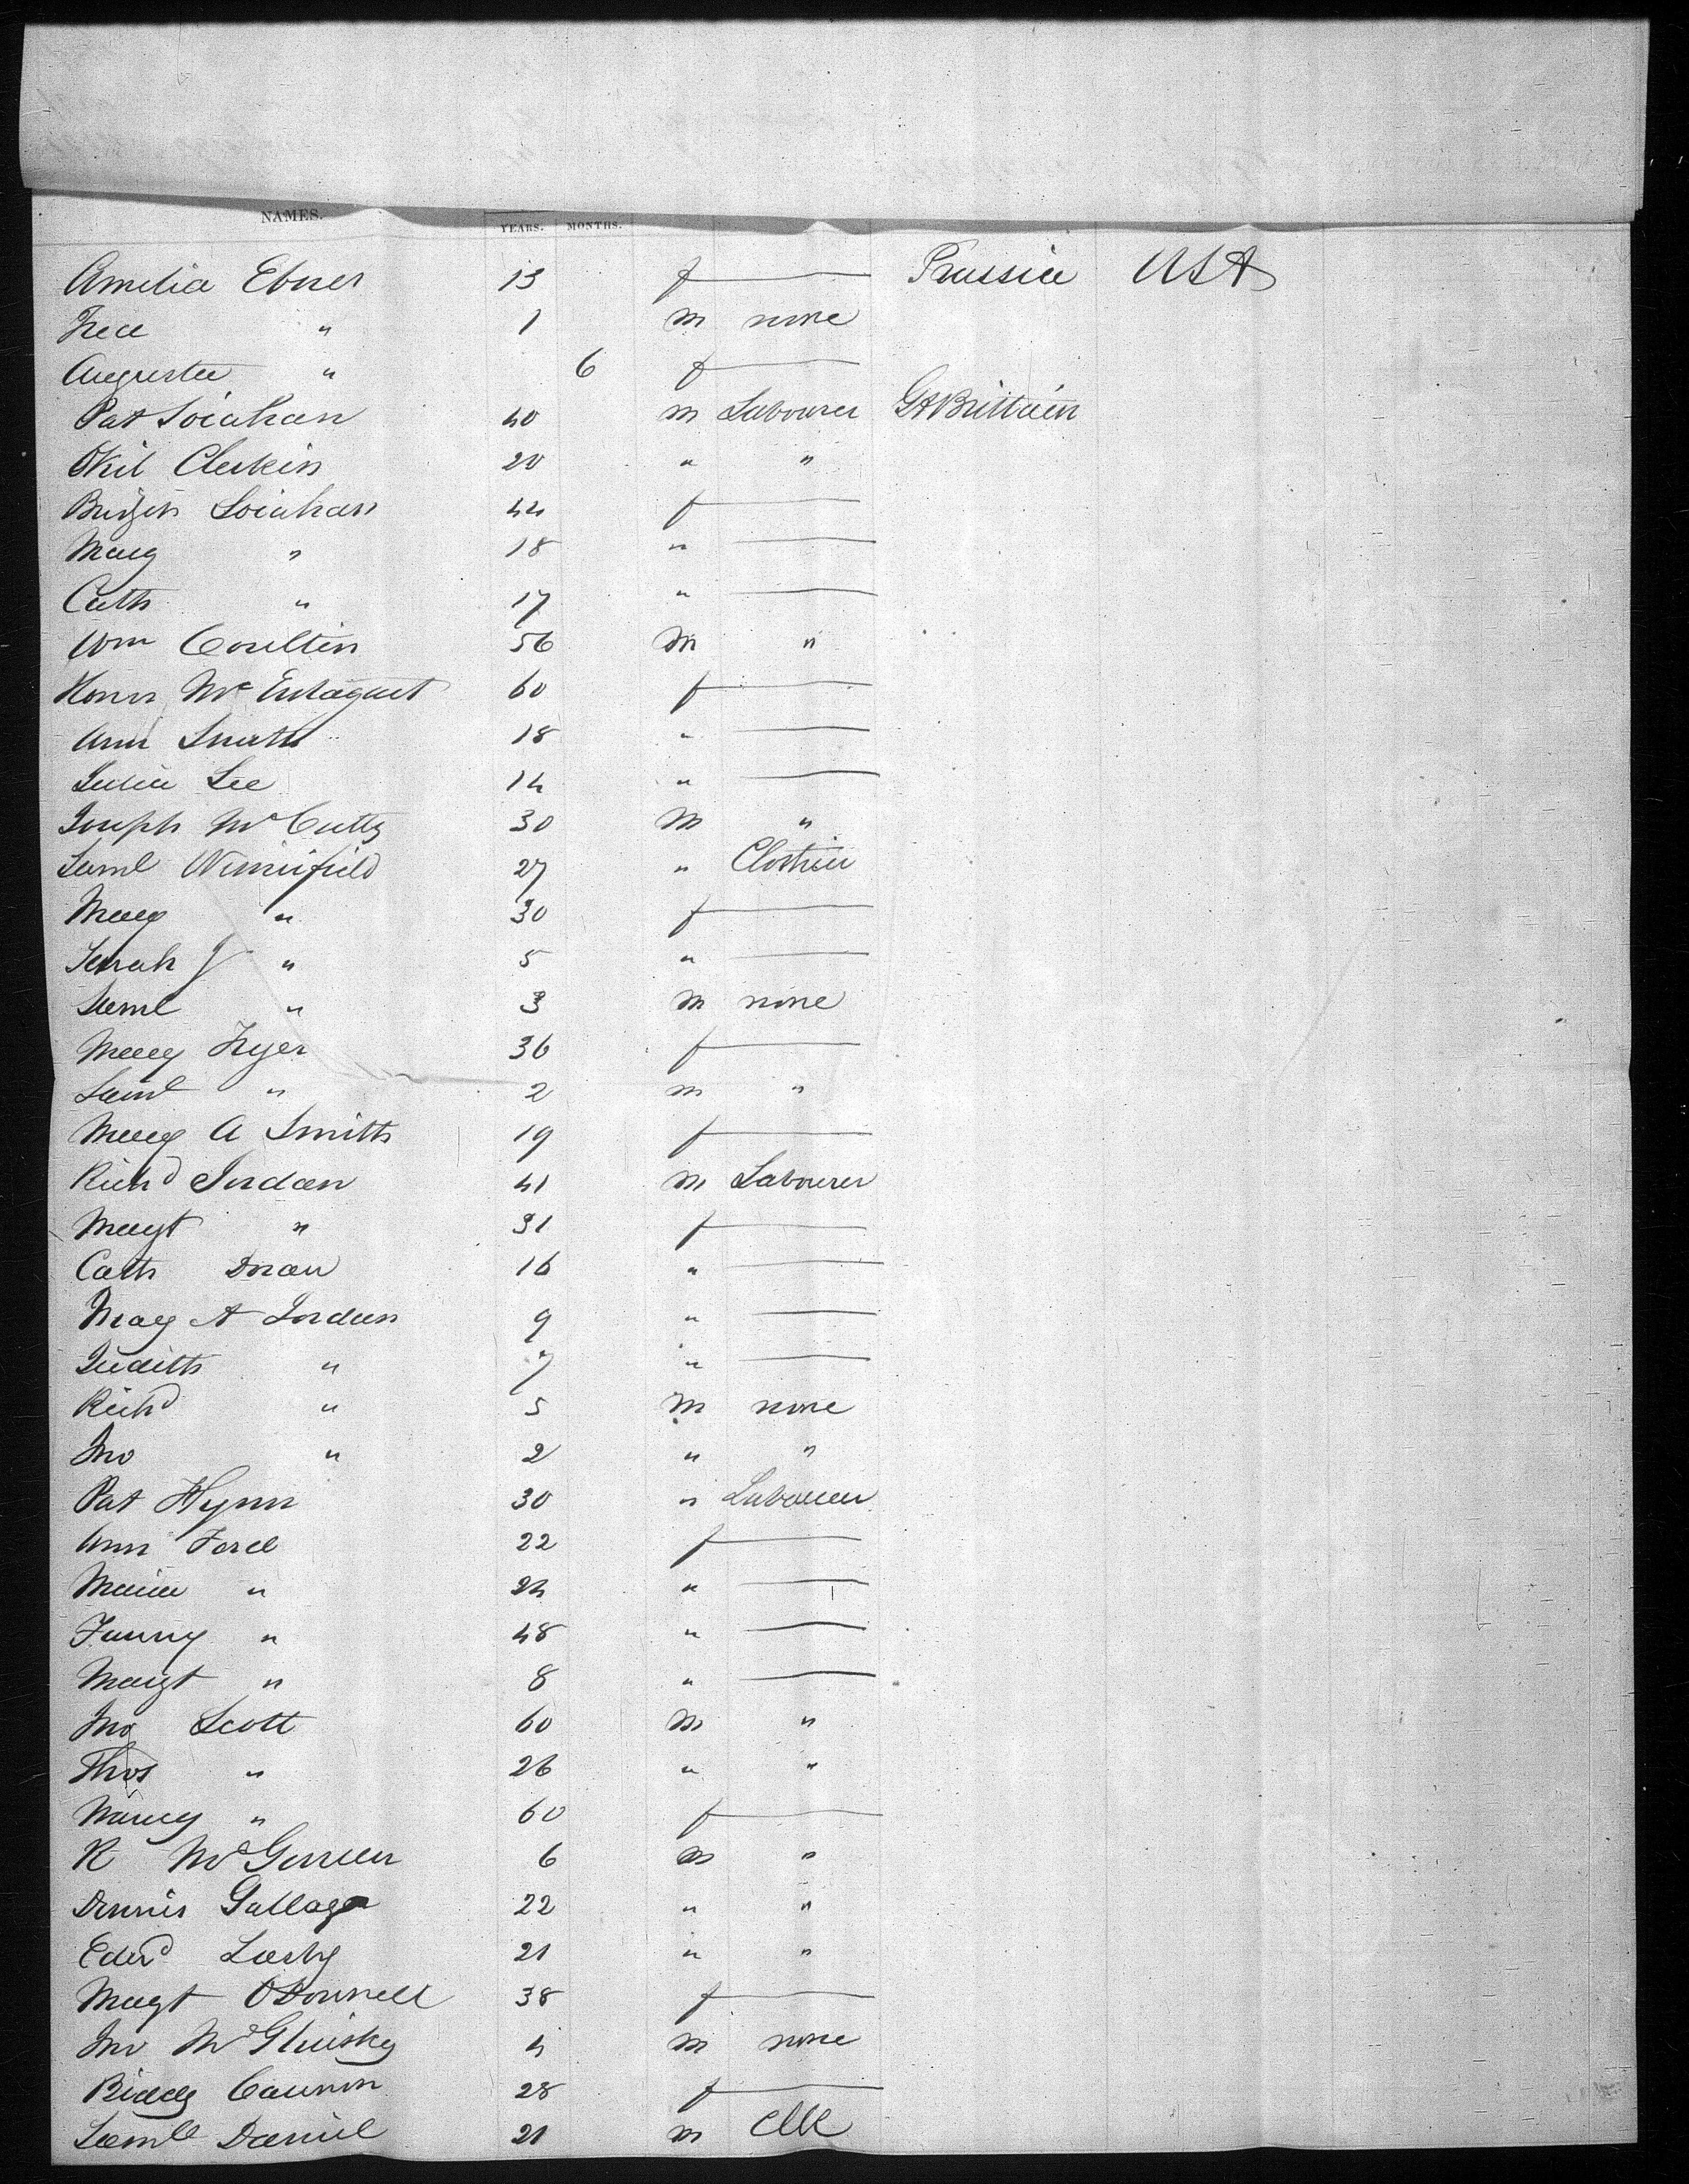 NAMES. YEARS. MONTHS.
Amelia Ebner 13 f Prussia USA
" 1 m none
Augusta " 6 f
Pat Loiahan 40 m Labourer Gt Brittain
Clerkin 20 " "
Bridget Loiahan 44 f
Mary " 18 "
Cath " 17 "
Wm Coultin 56 m "
Honor Mc 60 f
Ann Smith 18 "
Julia Lee 14 "
Joseph McCutty 30 m "
Saml Winnifield 27 " Clothier
Mary " 30 f
Sarah J " 5 "
Saml " 3 m none
Mary Fryer 36 f
Saml " 2 m "
Mary A Smith 19 f
Richd Jordan 41 m Labourer
Magt " 31 f
Cath Doran 16 "
Mary A Jordan 9 "
Judith " 7 "
Richd " 5 m none
Jno " 2 " "
Pat Flynn 30 " Labourer
Ann Ford 22 f
Maria " 24 "
Fanny " 48 "
Margt " 8 "
Jno Scott 60 m "
Thos " 26 " "
Nancy " 60 f
R 6 m "
Dennis Gallagr 22 " "
Edwd 21 " "
Magt ODonnell 38 f
Jno McGluisky 4 m none
Biddy Cannon 28 f
Saml Daniel 21 m Clk